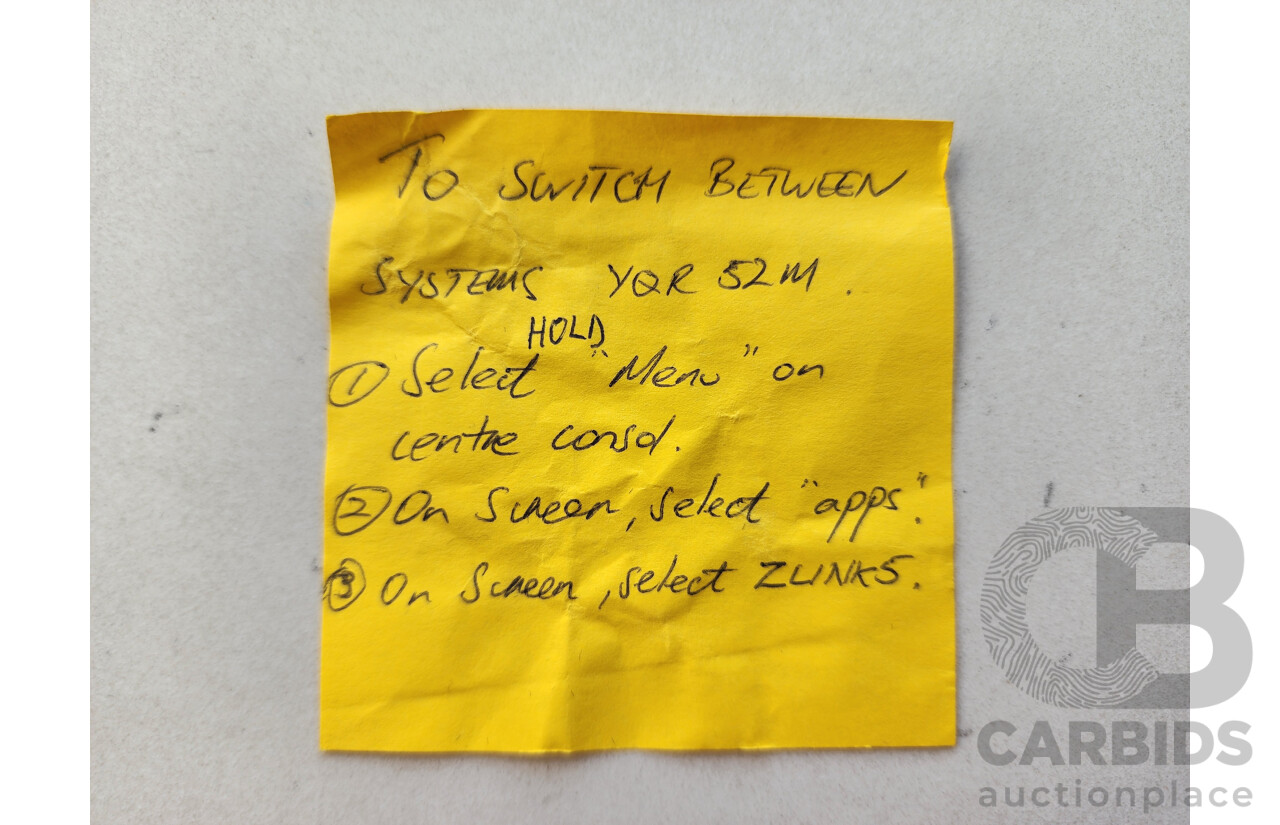 TO SWITCH BETWEEN
SYSTEMS YQR 52M.
HOLD
① Select "Menu" on
centre consol.
② On Screen, select "apps".
③ On Screen, select ZLINK5.
CB
CARBIDS
auctionplace